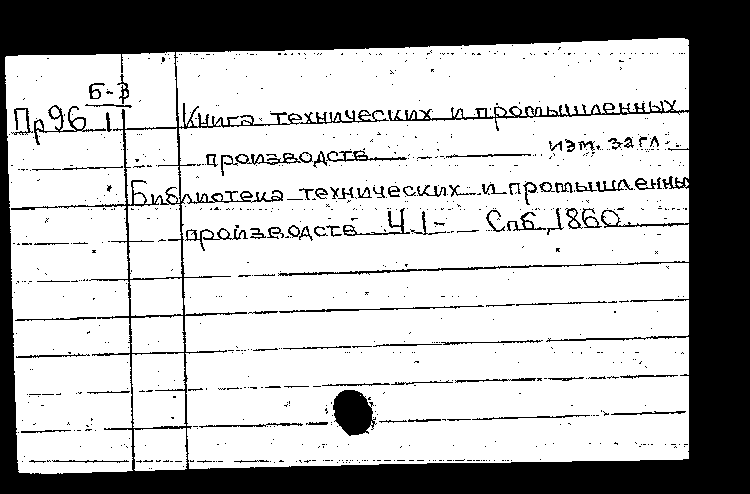 Б-3
Пр96 11 Книга технических и промышленных
производств изм. загл.
Библиотека технических и промышленны
производств Ч.1- Спб, 1860.